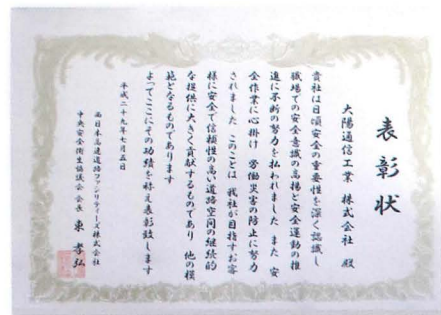 表彰状
大陽通信工業 株式会社 殿
貴社は日頃安全の重要性を深く認識し
職場での安全意識の高揚と安全運動の推
進に不断の努力を払われました また 安
全作業に心掛け 労働災害の防止に努力
されました このことは 我社が目指すお客
様に安全で信頼性の高い道路空間の継続的
な提供に大きく貢献するものであり 他の模
範となるものであります
よってここにその功績を称え表彰致します
平成二十九年七月五日
西日本高速道路ファシリティーズ株式会社
中央安全衛生協議会 会長 東 孝弘